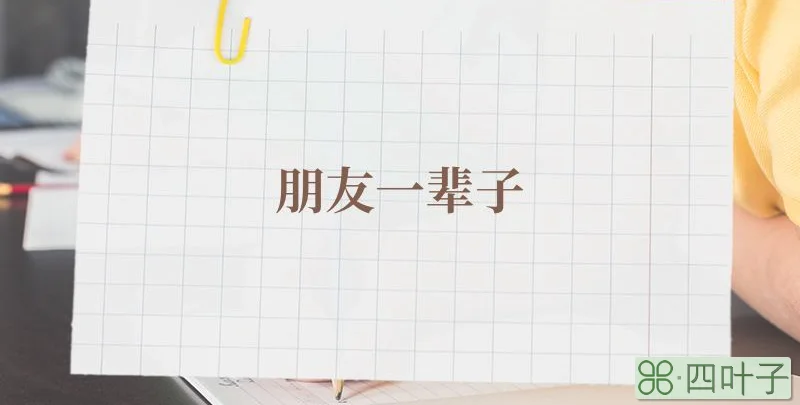 朋友一辈子
四叶子